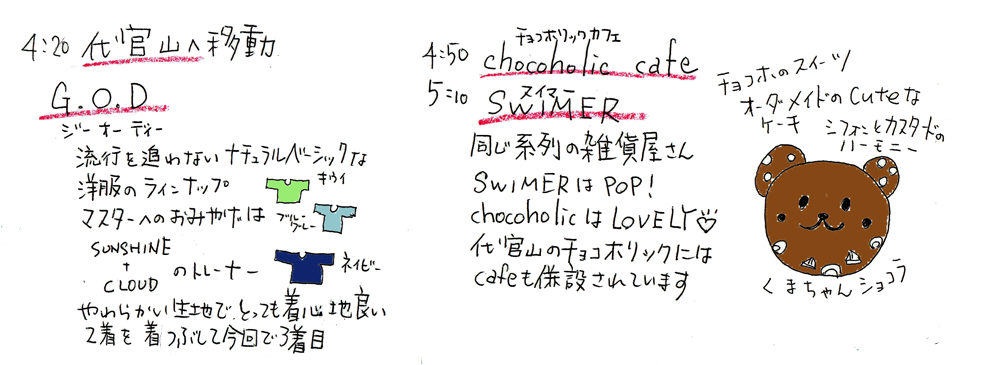 4:20 代官山へ移動
G.O.D
ジーオーディー
流行を追わないナチュラルベーシックな
洋服のラインナップ
キウイ
マスターへのおみやげは
ブルーグレー
SUNSHINE
+
CLOUD
のトレーナー
ネイビー
やわらかい生地でとっても着心地良い
2着を着つぶして今回で3着目
チョコホリックカフェ
4:50 chocoholic cafe
スイマー
5:10 SWIMER
同じ系列の雑貨屋さん
SWIMERはPOP!
chocoholicはLOVELY♡
代官山のチョコホリックには
cafeも併設されています
チョコホのスイーツ
オーダメイドのcuteな
ケーキ
シフォンとカスタードの
ハーモニー
くまちゃんショコラ